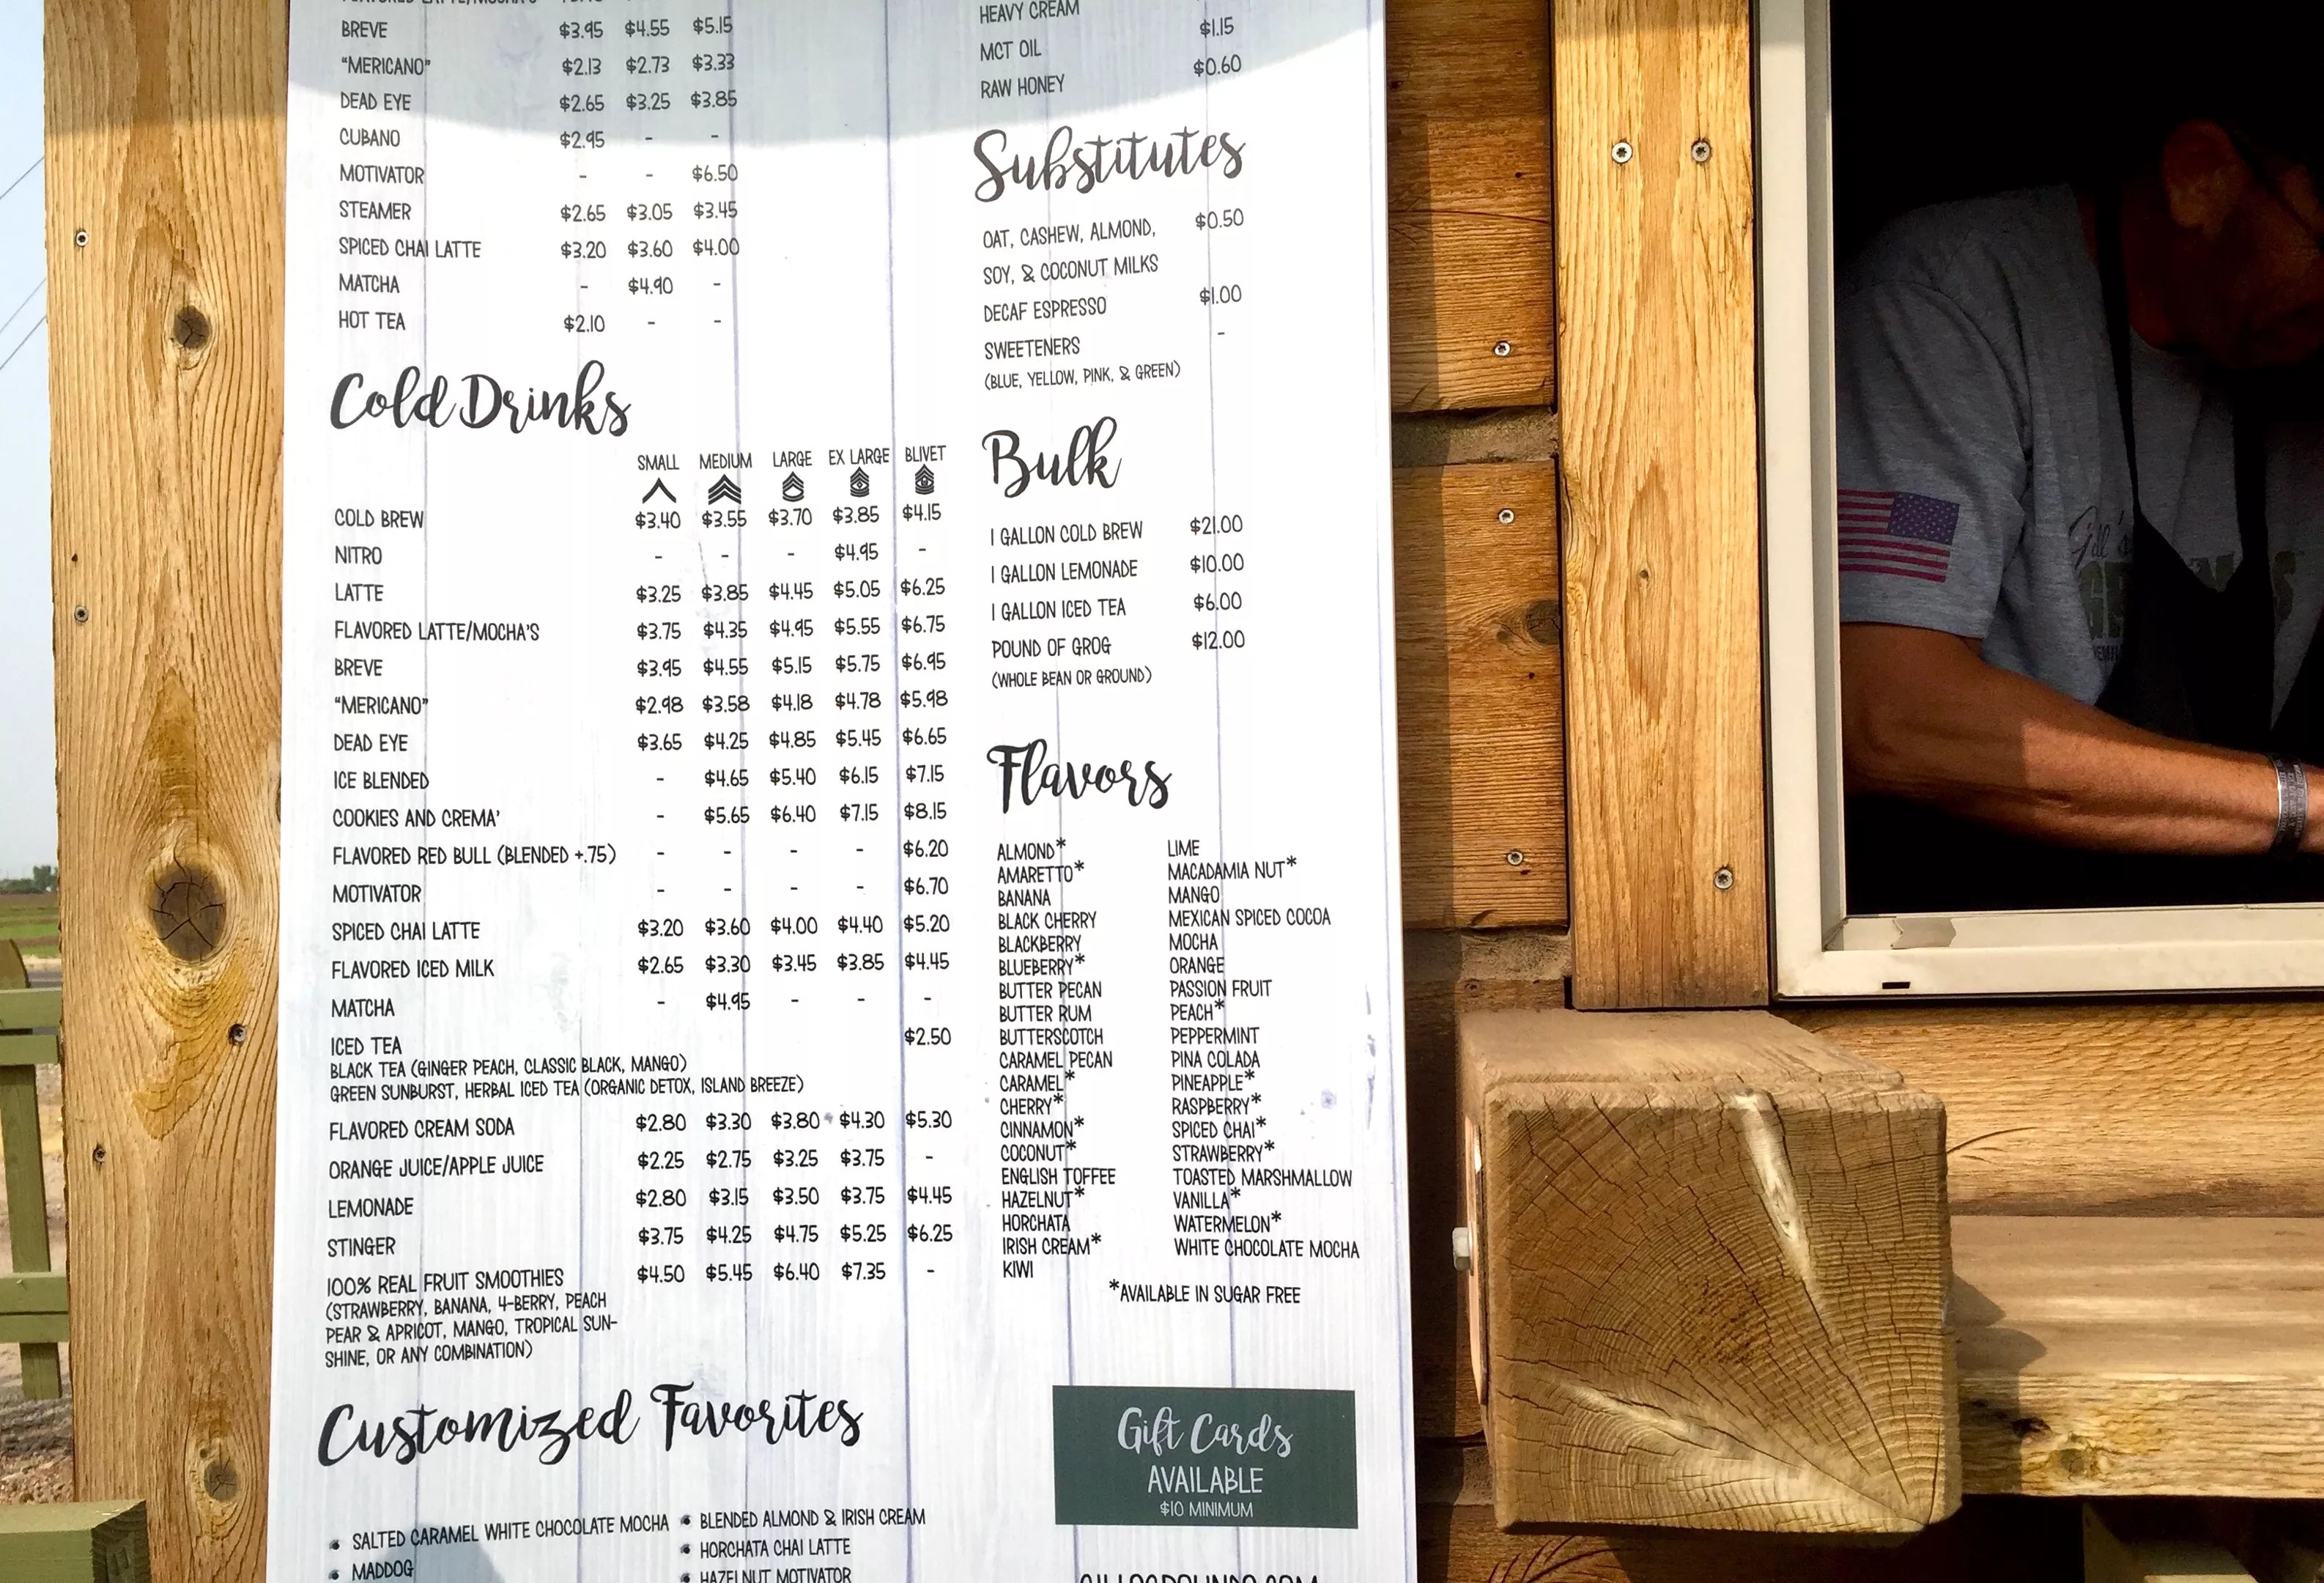 BREVE $3.95 $4.55 $5.15
"MERICANO" $2.13 $2.73 $3.33
DEAD EYE $2.65 $3.25 $3.85
CUBANO $2.95 - -
MOTIVATOR - - $6.50
STEAMER $2.65 $3.05 $3.45
SPICED CHAI LATTE $3.20 $3.60 $4.00
MATCHA - $4.90 -
HOT TEA $2.10 - -
Cold Drinks
SMALL MEDIUM LARGE EX LARGE BLIVET
COLD BREW $3.40 $3.55 $3.70 $3.85 $4.15
NITRO - - - $4.95 -
LATTE $3.25 $3.85 $4.45 $5.05 $6.25
FLAVORED LATTE/MOCHA'S $3.75 $4.35 $4.95 $5.55 $6.75
BREVE $3.95 $4.55 $5.15 $5.75 $6.95
"MERICANO" $2.98 $3.58 $4.18 $4.78 $5.98
DEAD EYE $3.65 $4.25 $4.85 $5.45 $6.65
ICE BLENDED - $4.65 $5.40 $6.15 $7.15
COOKIES AND CREMA' - $5.65 $6.40 $7.15 $8.15
FLAVORED RED BULL (BLENDED +.75) - - - - $6.20
MOTIVATOR - - - - $6.70
SPICED CHAI LATTE $3.20 $3.60 $4.00 $4.40 $5.20
FLAVORED ICED MILK $2.65 $3.30 $3.45 $3.85 $4.45
MATCHA - $4.95 - - -
ICED TEA $2.50
BLACK TEA (GINGER PEACH, CLASSIC BLACK, MANGO)
GREEN SUNBURST, HERBAL ICED TEA (ORGANIC DETOX, ISLAND BREEZE)
FLAVORED CREAM SODA $2.80 $3.30 $3.80 $4.30 $5.30
ORANGE JUICE/APPLE JUICE $2.25 $2.75 $3.25 $3.75 -
LEMONADE $2.80 $3.15 $3.50 $3.75 $4.45
STINGER $3.75 $4.25 $4.75 $5.25 $6.25
100% REAL FRUIT SMOOTHIES $4.50 $5.45 $6.40 $7.35 -
(STRAWBERRY, BANANA, 4-BERRY, PEACH
PEAR & APRICOT, MANGO, TROPICAL SUN-
SHINE, OR ANY COMBINATION)
Customized Favorites
SALTED CARAMEL WHITE CHOCOLATE MOCHA
MADDOG
BLENDED ALMOND & IRISH CREAM
HORCHATA CHAI LATTE
HAZELNUT MOTIVATOR
HEAVY CREAM
MCT OIL $1.15
RAW HONEY $0.60
Substitutes
OAT, CASHEW, ALMOND, $0.50
SOY, & COCONUT MILKS
DECAF ESPRESSO $1.00
SWEETENERS -
(BLUE, YELLOW, PINK, & GREEN)
Bulk
1 GALLON COLD BREW $21.00
1 GALLON LEMONADE $10.00
1 GALLON ICED TEA $6.00
POUND OF GROG $12.00
(WHOLE BEAN OR GROUND)
Flavors
ALMOND*
AMARETTO*
BANANA
BLACK CHERRY
BLACKBERRY
BLUEBERRY*
BUTTER PECAN
BUTTER RUM
BUTTERSCOTCH
CARAMEL PECAN
CARAMEL*
CHERRY*
CINNAMON*
COCONUT*
ENGLISH TOFFEE
HAZELNUT*
HORCHATA
IRISH CREAM*
KIWI
LIME
MACADAMIA NUT*
MANGO
MEXICAN SPICED COCOA
MOCHA
ORANGE
PASSION FRUIT
PEACH*
PEPPERMINT
PINA COLADA
PINEAPPLE*
RASPBERRY*
SPICED CHAI*
STRAWBERRY*
TOASTED MARSHMALLOW
VANILLA*
WATERMELON*
WHITE CHOCOLATE MOCHA
*AVAILABLE IN SUGAR FREE
Gift Cards
AVAILABLE
$10 MINIMUM